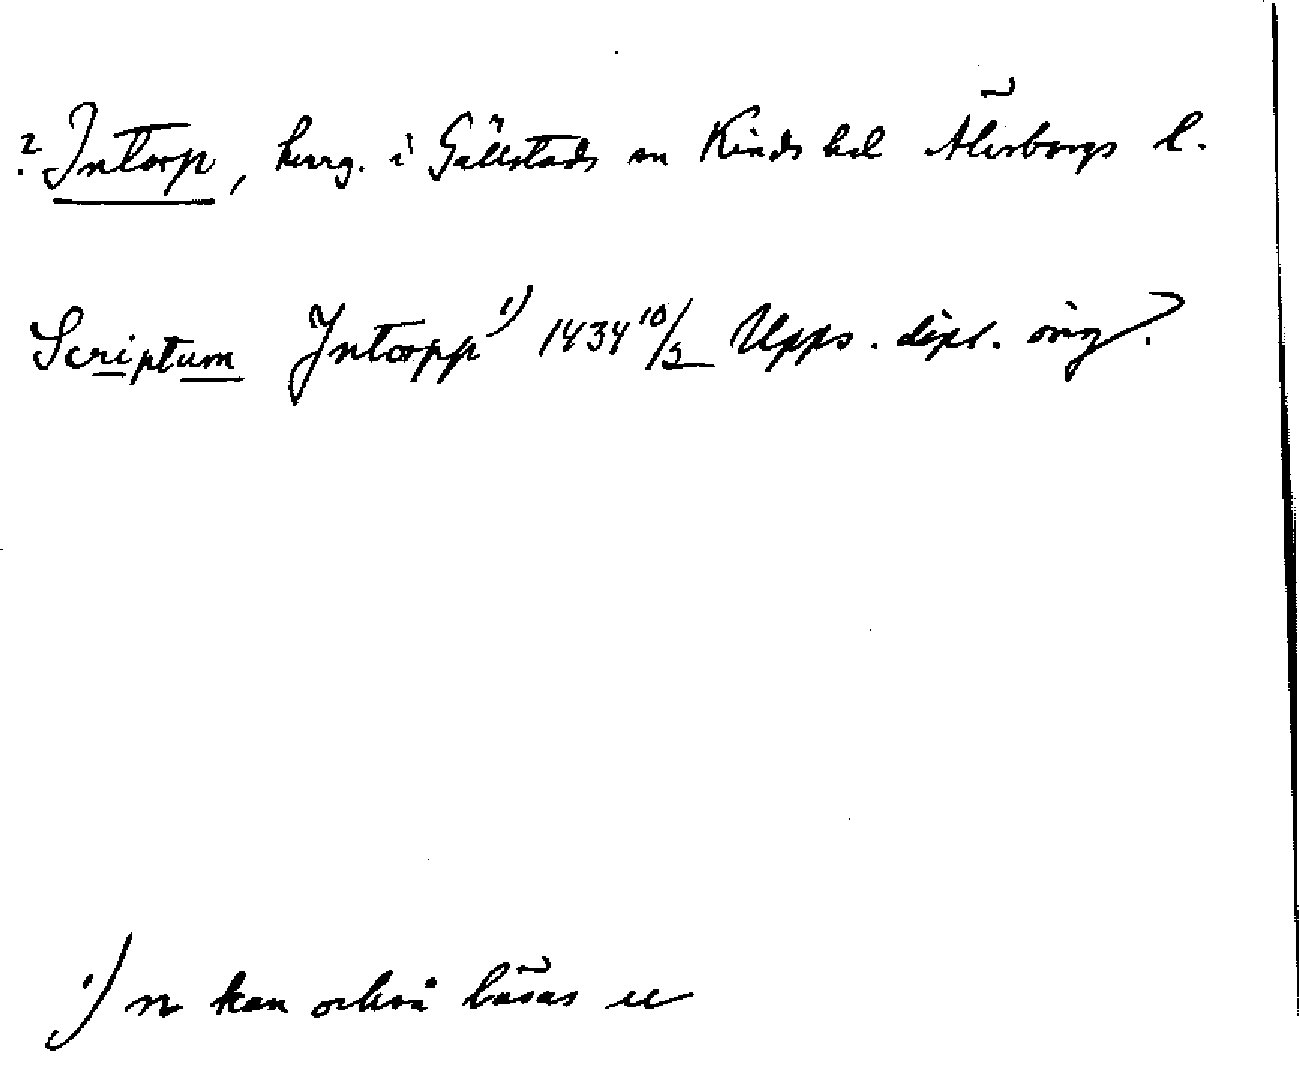 ? Intorp, herrg. i Gällstads sn Kinds hd Älvsborgs l.
Scriptum Jntorpp 1) 1434 10/3 Upps. dipl. orig?
1) n kan också läsas u